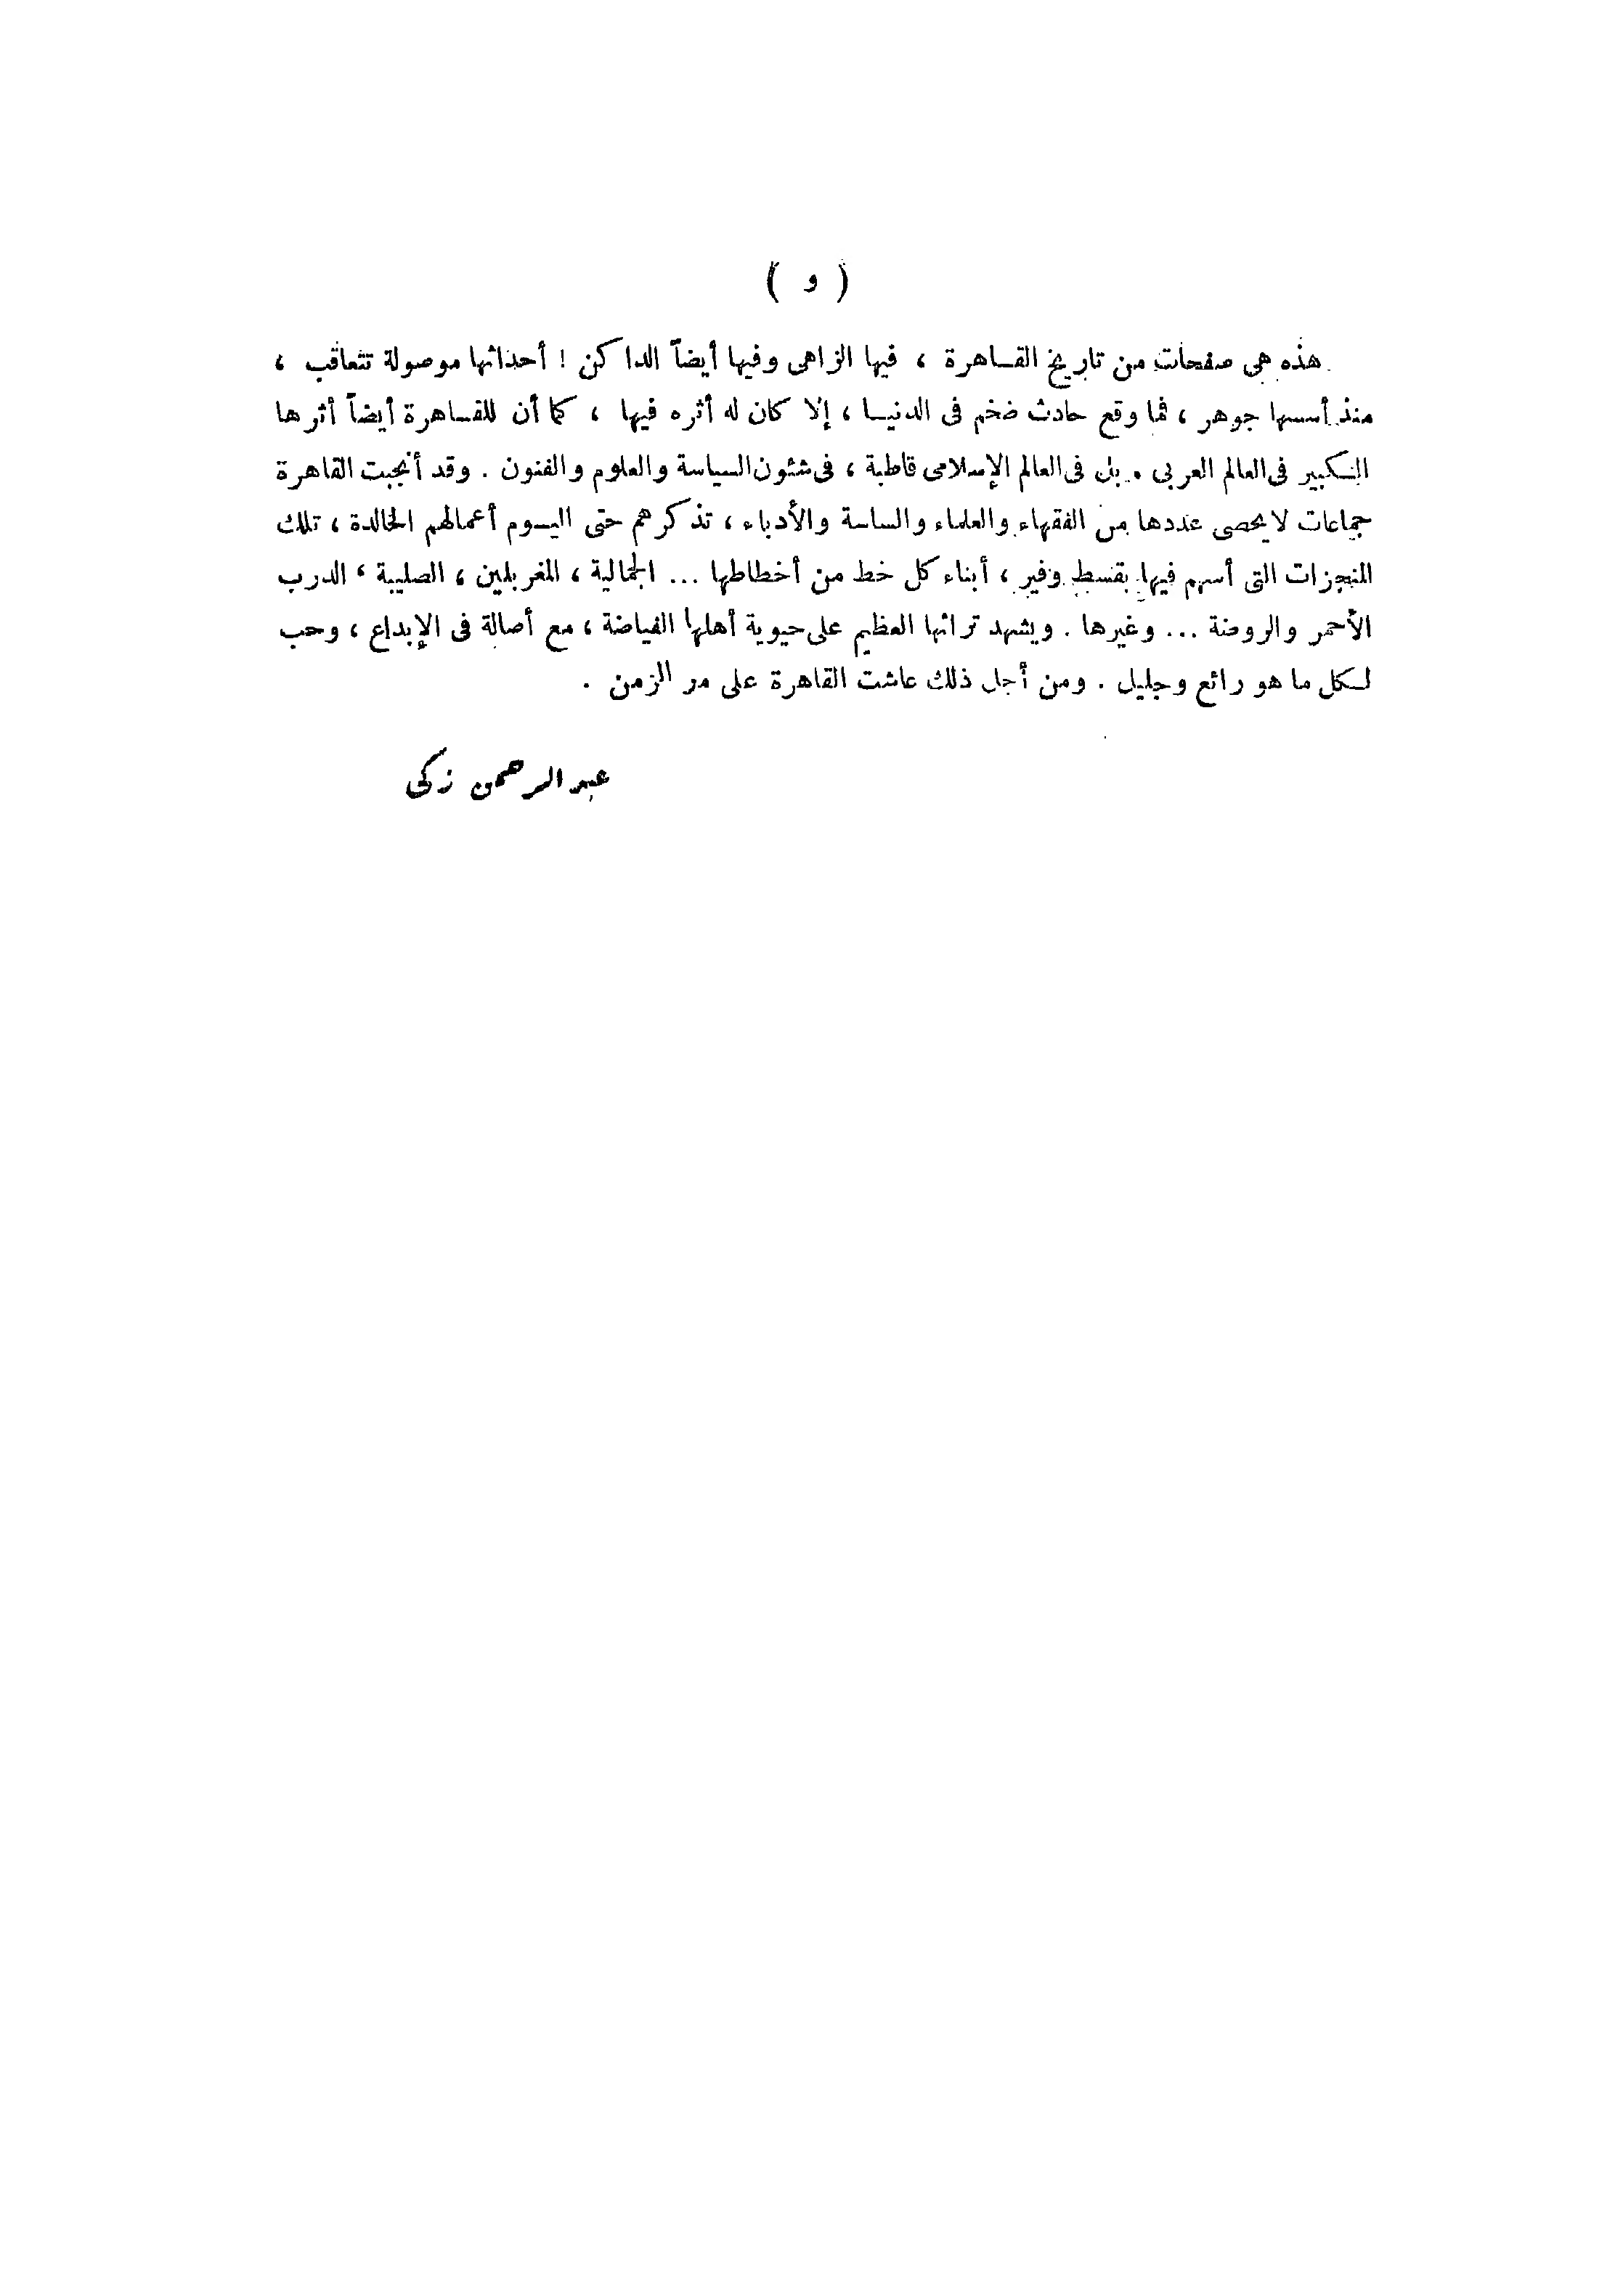 ( و )
هذه هى صفحات من تاريخ القاهرة ، فيها الزاهى وفيها أيضاً الداكن ! أحداثها موصولة تتعاقب ،
منذ أسسها جوهر ، فما وقع حادث ضخم فى الدنيا ، إلا كان له أثره فيها ، كما أن للقاهرة أيضاً أثرها
الكبير فى العالم العربى . بل فى العالم الإسلامى قاطبة ، فى شئون السياسة والعلوم والفنون . وقد أنجبت القاهرة
جماعات لا يحصى عددها من الفقهاء والعلماء والساسة والأدباء ، تذكرهم حتى اليوم أعمالهم الخالدة ، تلك
المنجزات التى أسهم فيها بقسط وفير ، أبناء كل خط من أخطاطها ... الجمالية ، المغربلين ، الصليبة ، الدرب
الأحمر والروضة ... وغيرها . ويشهد تراثها العظيم على حيوية أهلها الفياضة ، مع أصالة فى الإبداع ، وحب
لكل ما هو رائع وجليل . ومن أجل ذلك عاشت القاهرة على مر الزمن .
عبد الرحمن زكى